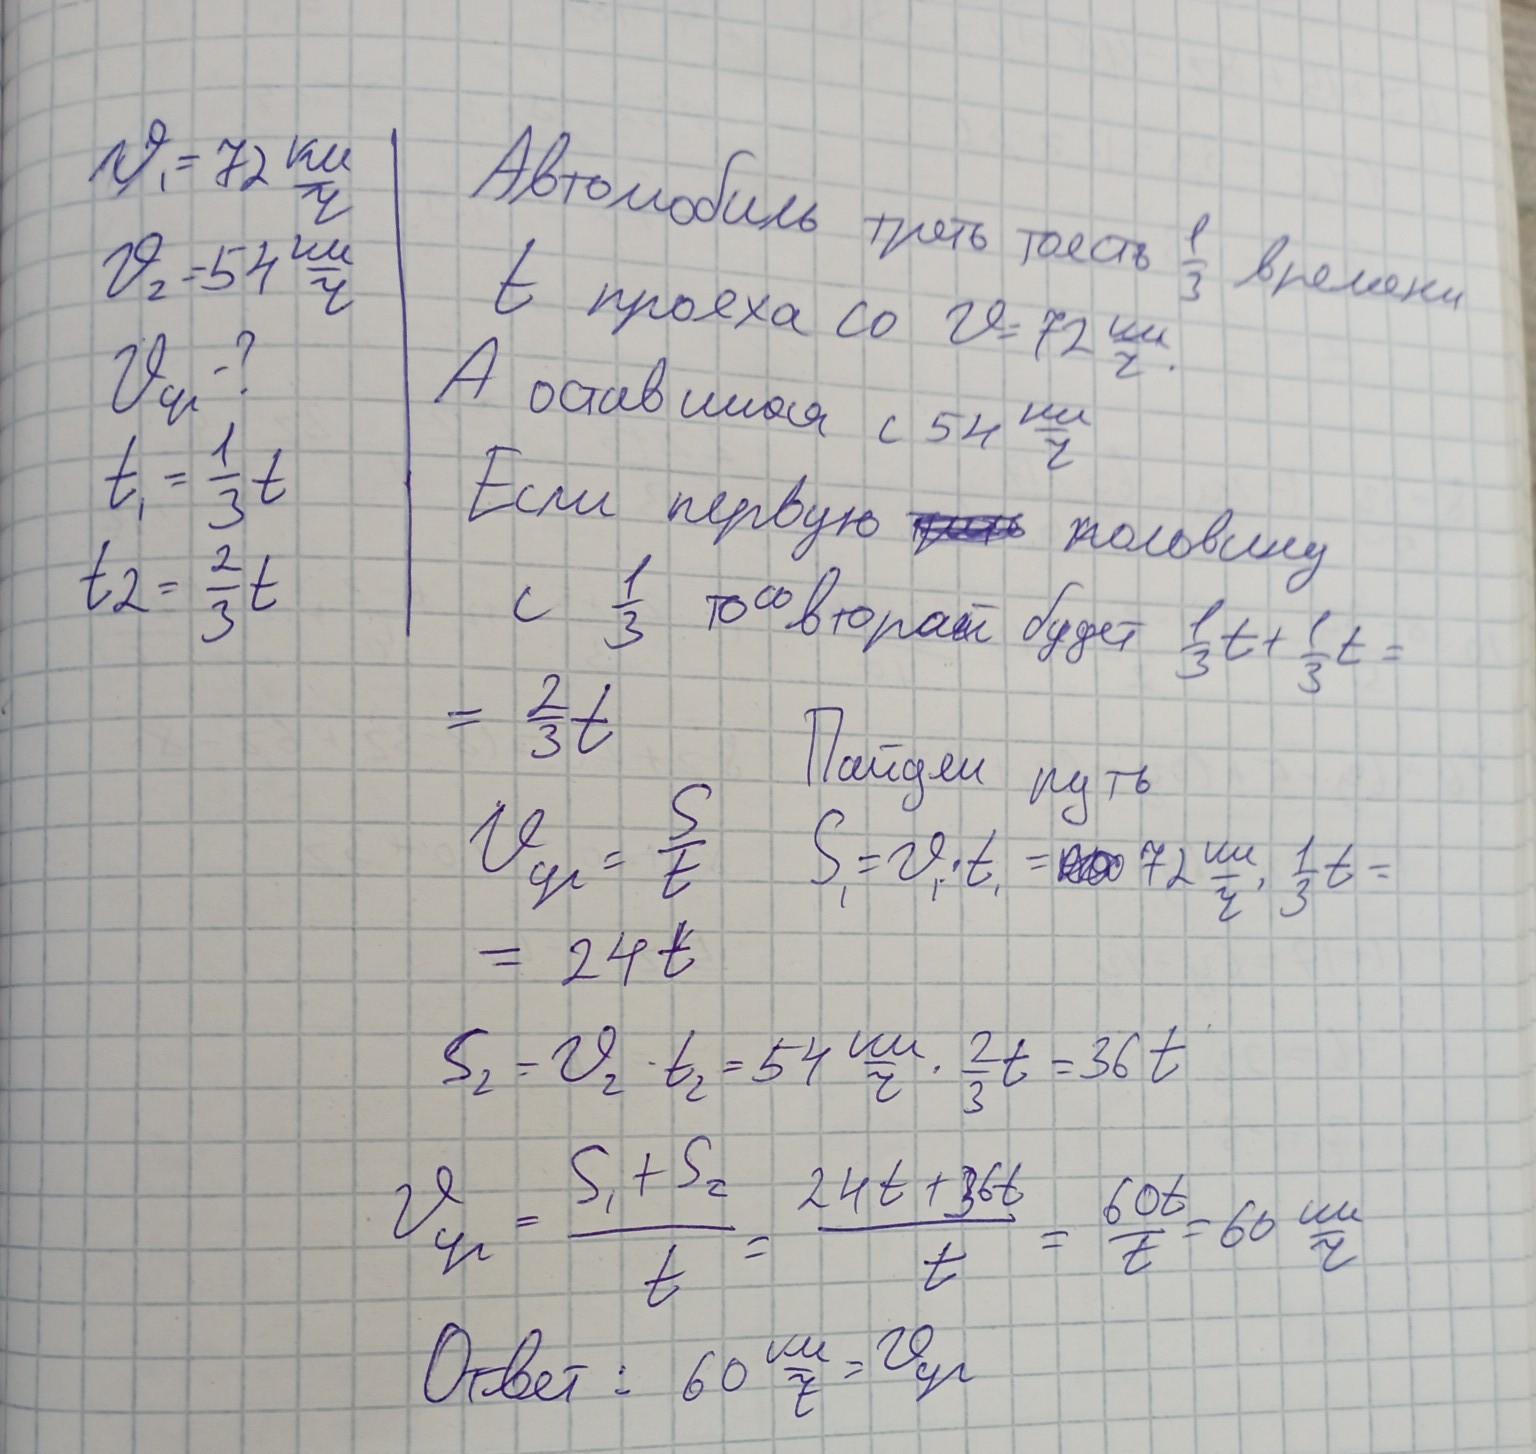 v₁ = 72 км/ч
v₂ = 54 км/ч
vср - ?
t₁ = 1/3 t
t2 = 2/3 t
Автомобиль треть тоесть 1/3 времени
t прояха со v = 72 км/ч.
А оставшиая с 54 км/ч
Если первую половину
с 1/3 то со второй будет 1/3 t + 1/3 t =
= 2/3 t
Пайдем путь
vср = S/t
S₁ = v₁ · t₁ = 72 км/ч · 1/3 t =
= 24 t
S₂ = v₂ · t₂ = 54 км/ч · 2/3 t = 36 t
vср = (S₁ + S₂)/t = (24t + 36t)/t = 60t/t = 60 км/ч
Ответ: 60 км/ч = vср